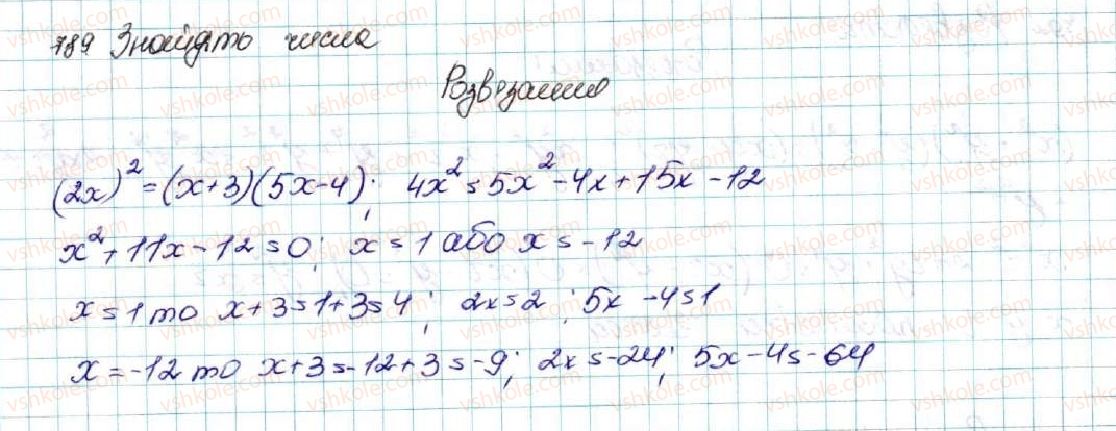 789 Знайдіть числа
Розв'язання
(2x)² = (x+3)(5x-4); 4x² = 5x² - 4x + 15x - 12
x² + 11x - 12 = 0; x = 1 або x = -12
x = 1 то x + 3 = 1 + 3 = 4; 2x = 2; 5x - 4 = 1
x = -12 то x + 3 = -12 + 3 = -9; 2x = -24; 5x - 4 = -64